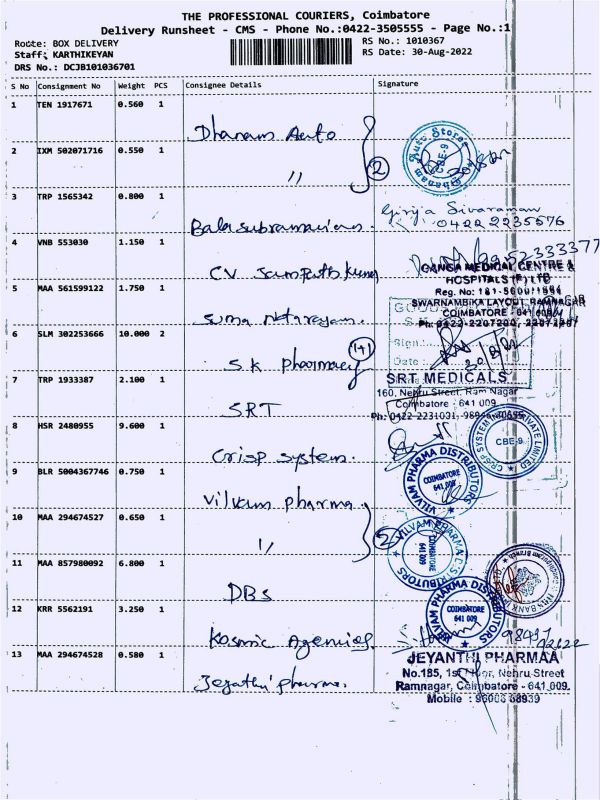 THE PROFESSIONAL COURIERS, Coimbatore
Delivery Runsheet - CMS - Phone No.:0422-3505555 - Page No.:1
Route: BOX DELIVERY
RS No.: 1010367
Staff: KARTHIKEYAN
RS Date: 30-Aug-2022
DRS No.: DCJB101036701
S No Consignment No Weight PCS Consignee Details Signature
1 TEN 1917671 0.560 1
Dhanam Auto
2 IXM 502071716 0.550 1
" 2
3 TRP 1565342 0.800 1
Girija Sivaraman
0422 2235576
Balasubramanian
4 VNB 553030 1.150 1
CV Sampathkumar
GANGA MEDICAL CENTRE &
HOSPITALS (P) LTD
5 MAA 561599122 1.750 1
SWARNAMBIKA LAYOUT, RAMNAGAR
COIMBATORE - 641 009
Suma Natarajan.
Ph: 0422-2207200, 22071207
6 SLM 302253666 10.000 2
Sign:
S K pharmacy
Date:
7 TRP 1933387 2.100 1
SRT MEDICALS
160, Nehru Street, Ram Nagar
SRT
Coimbatore - 641 009
Ph: 0422-2231031,
8 HSR 2480955 9.600 1
CBE-9
Crisp system.
9 BLR 5004367746 0.750 1
VILVAM PHARMA DISTRIBUTORS
COIMBATORE
641 009
Vilvam pharma
10 MAA 294674527 0.650 1
" 2
VILVAM PHARMA DISTRIBUTORS
COIMBATORE
641 009
11 MAA 857980092 6.800 1
DBS
VILVAM PHARMA DISTRIBUTORS
COIMBATORE
641 009
12 KRR 5562191 3.250 1
Kosmic Agencies.
13 MAA 294674528 0.580 1
JEYANTHI PHARMAA
No.185, 1st Floor, Nehru Street
Jeyathi pharma.
Ramnagar, Coimbatore - 641 009.
Mobile : 96006 68939